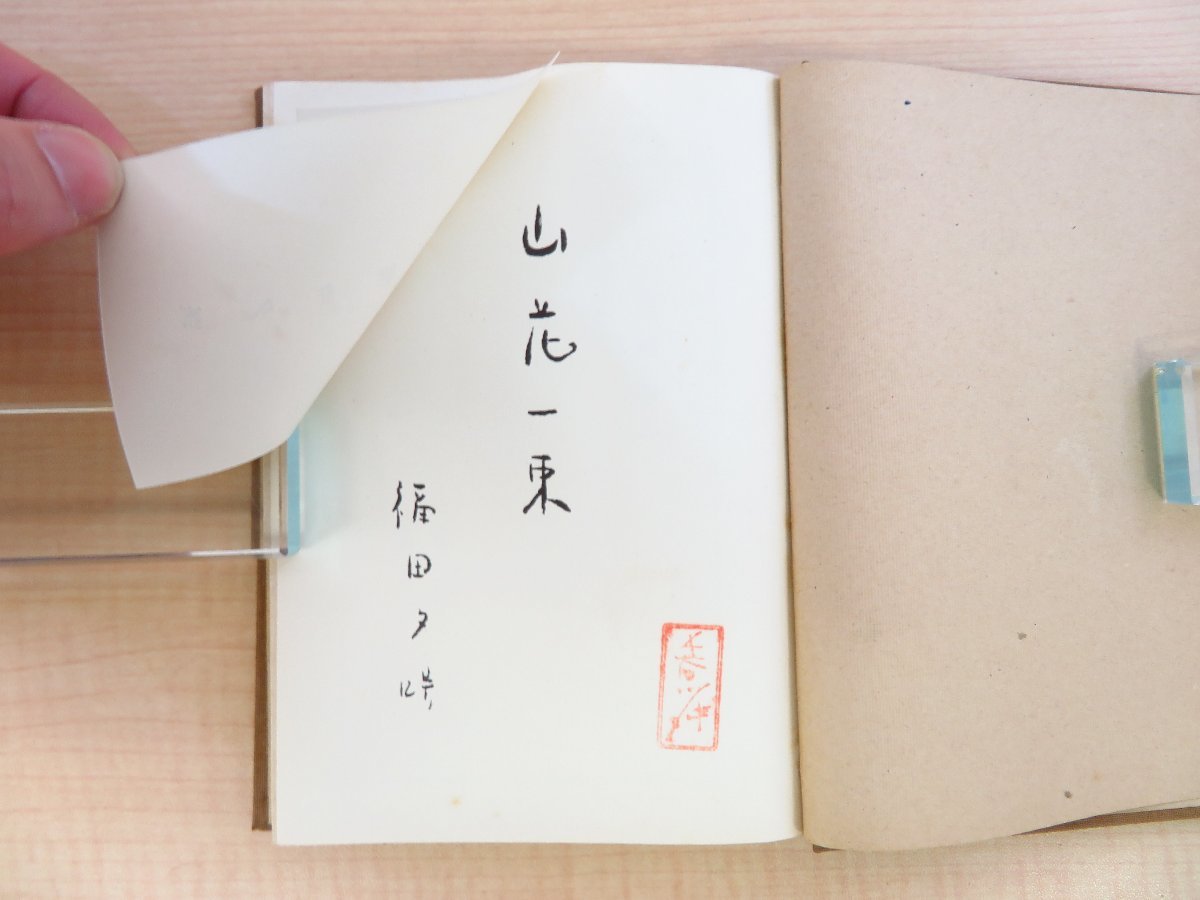 山花一束
福田夕咲